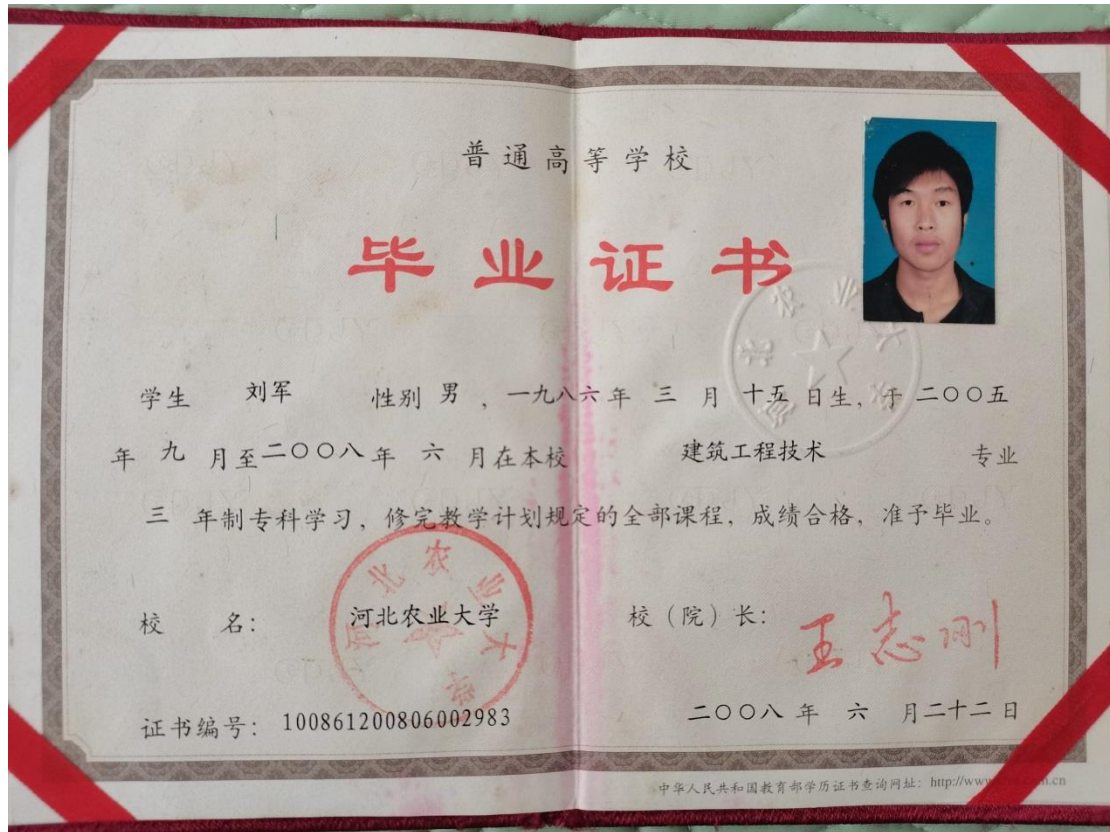 普通高等学校
毕业证书
学生 刘军 性别 男 ，一九八六年 三 月 十五 日生，于 二〇〇五
年 九 月至二〇〇八年 六 月在本校 建筑工程技术 专业
三 年制专科学习，修完教学计划规定的全部课程，成绩合格，准予毕业。
校 名： 河北农业大学 校（院）长： 王志刚
河北农业大学
证书编号： 100861200806002983 二〇〇八 年 六 月二十二日
中华人民共和国教育部学历证书查询网址：http://www